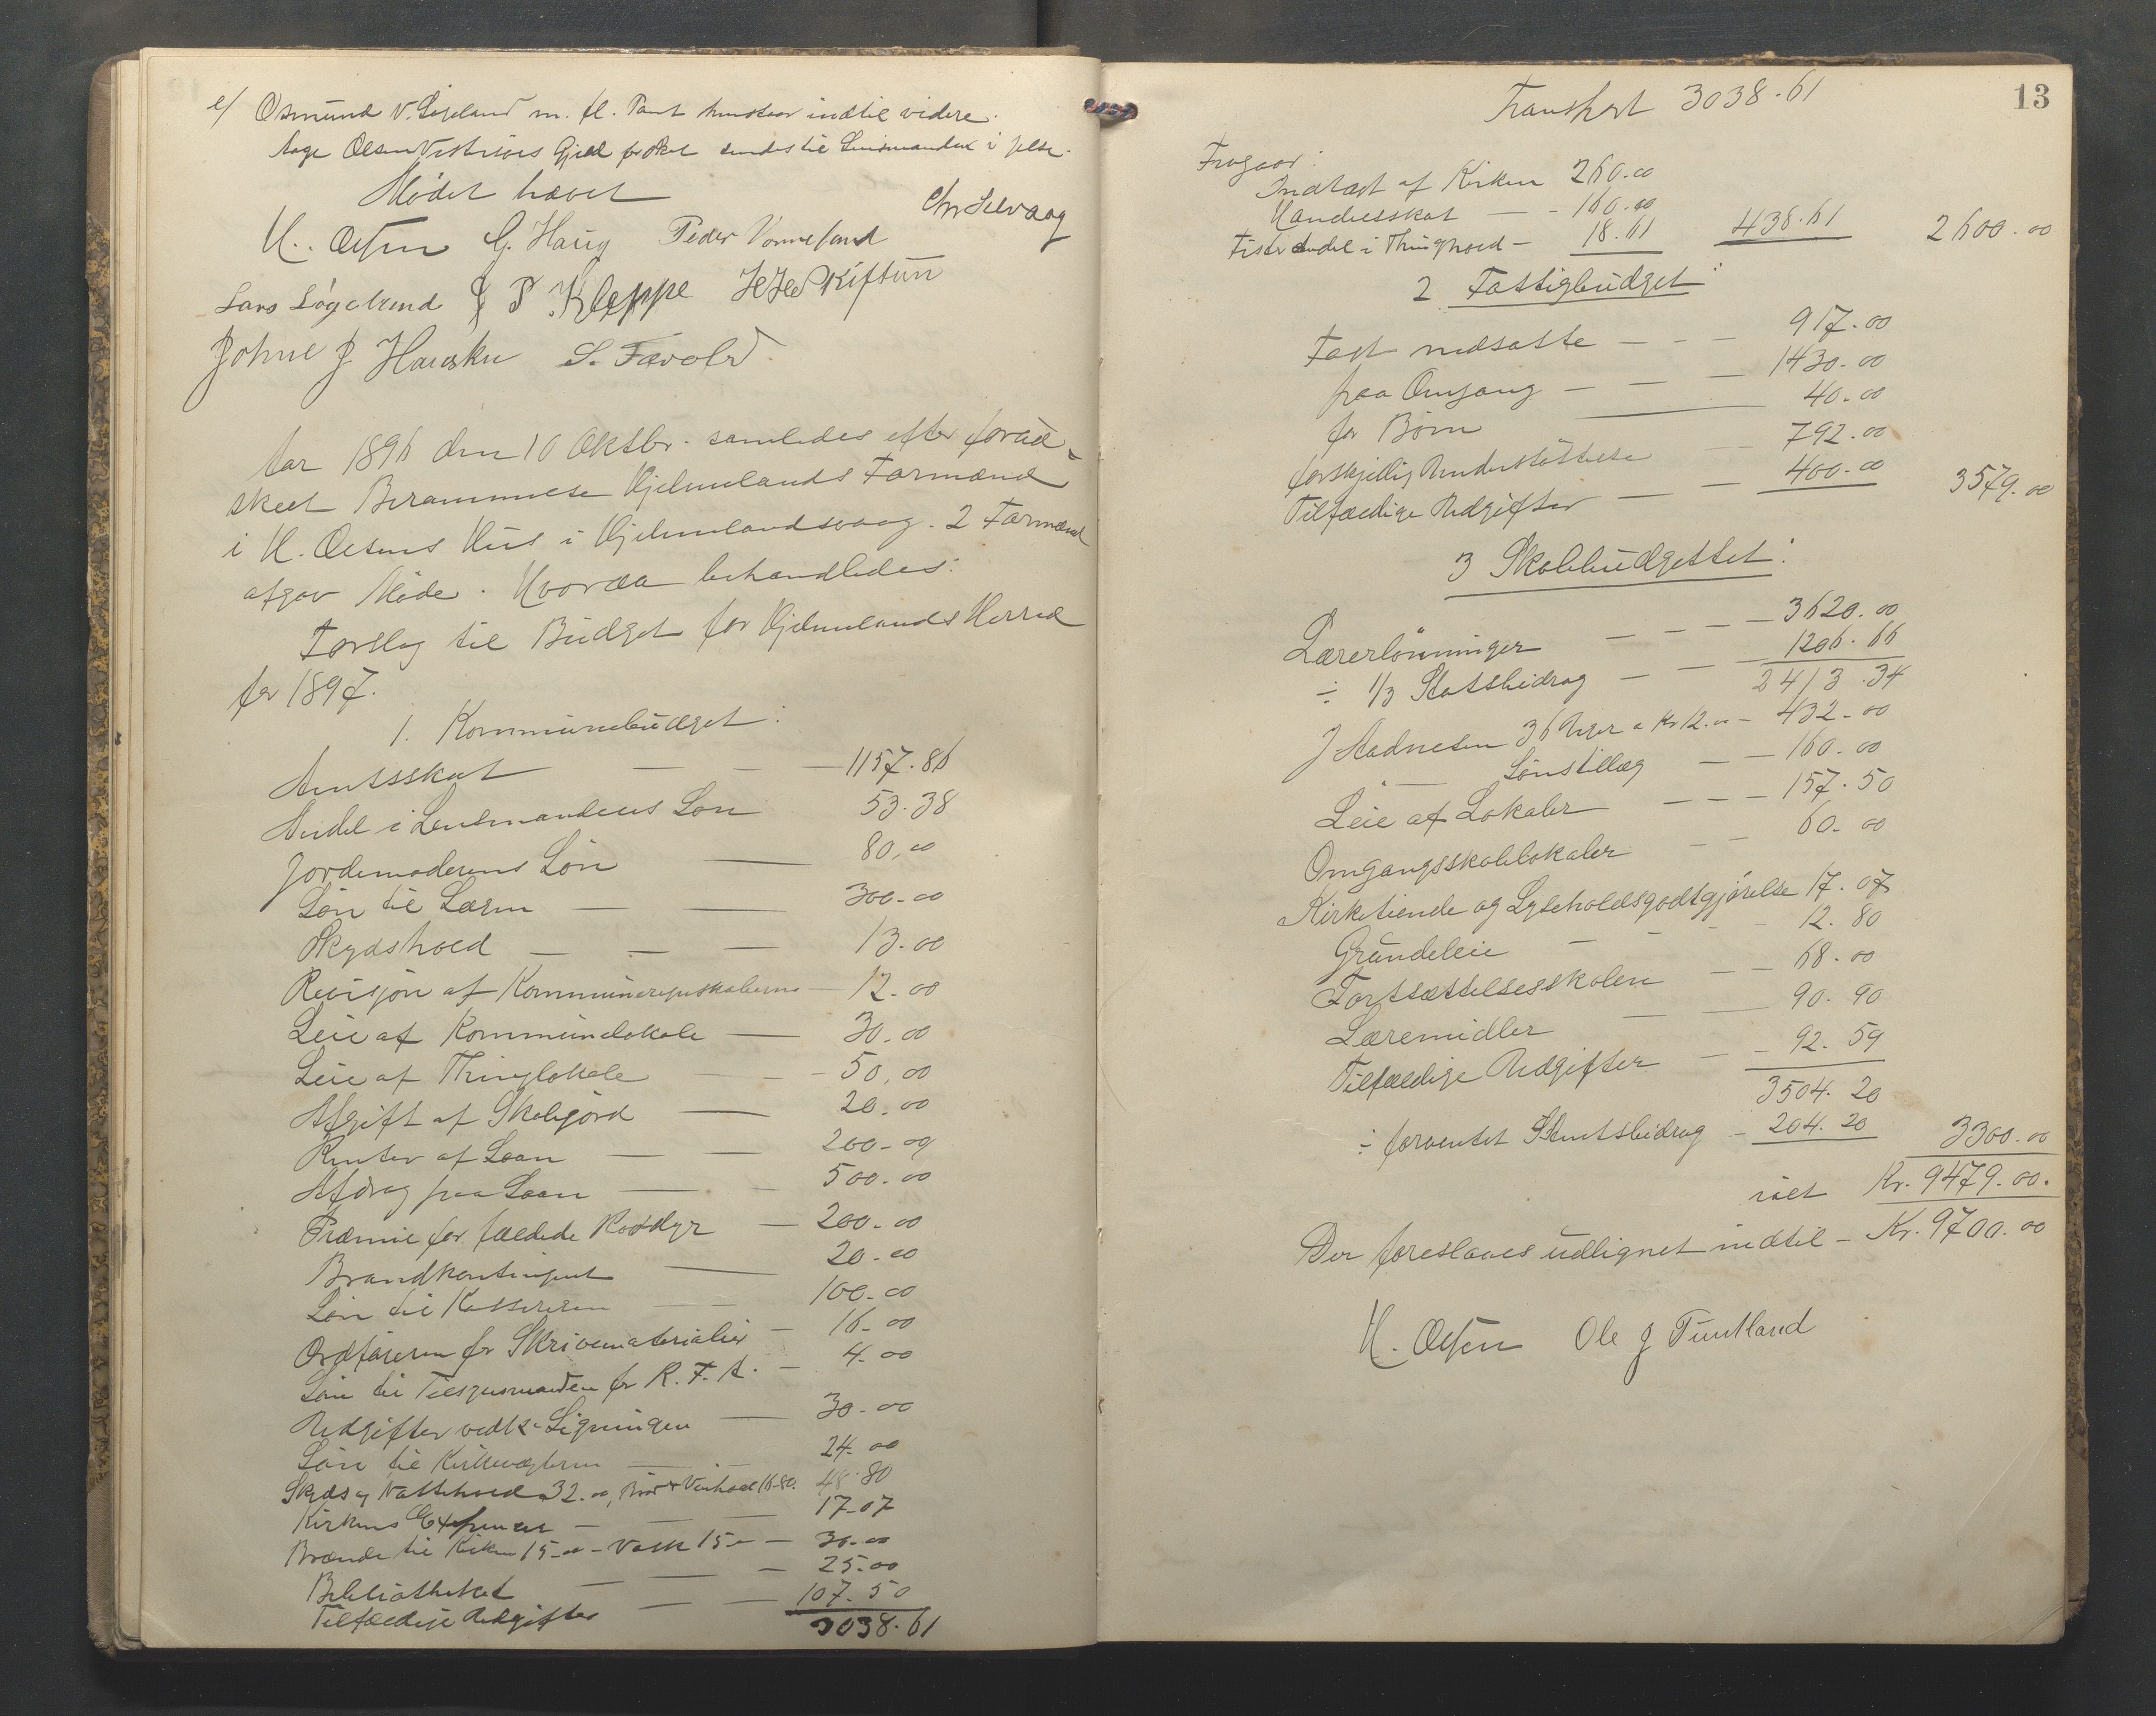 e/ Osmund V. Sigeland m. fl. Pant henstaar indtil videre.
Aage Olsen Gjæld for Skat sendes til Lensmanden i Jelse.
Mødet hævet
Chr Selvaag
H. Olsen G. Haug Peder Vormeland
Lars Løgelrend J P Kleppe H Hed Kiftun
Johne J. Hauske S. Favold
Aar 1896 den 10 Oktbr. samledes efter forud
skeet Berammelse Hjelmelands Formænd
i H. Olsens Hus i Hjelmelandsvaag. 2 Formænd
afgav Møde. Hvorda behandledes:
Forslag til Budget for Hjelmelands Herred
for 1897.
1. Kommunebudget:
Amtsskat — — — 1157.86
Andel i Lensmandens Løn 53.38
Jordemoderens Løn — 80.00
Løn til Lærer — — 300.00
Skydshold — — — 13.00
Revisjon af Kommuneregnskaberne — 12.00
Leie af Kommunelokale — 30.00
Leie af Thinglokale — — 50.00
Afgift af Skolejord — 20.00
Renter af Laan — — 200.00
Afdrag paa Laan — — 500.00
Præmie for fældede Rovdyr — 200.00
Brandkontingent — 20.00
Løn til Kassereren — — 100.00
Ordføreren for Skrivematerialier — 16.00
Løn til Tilsynsmanden for R. F. A. — 4.00
Udgifter vedk. Ligningen — 30.00
Løn til Kirkevægteren — — 24.00
Skyds og Nattehold 32.00, Brød & Vinhold 16.80. 48.80
Kirkens Expenser — — — 17.07
Brænde til Kirken 15.00 – Vask 15.– — 30.00
Bibliotheket — — — 25.00
Tilfældige Udgifter — — 107.50
3038.61
13
Transport 3038.61
Fragaar:
Indtægt af Kirken 260.00
Handelsskat — - 160.00
Andel i Thinghold – 18.61 438.61 2600.00
2 Fattigbudget:
Fast nedsatte — — — 917.00
paa Omgang — — — 1430.00
for Børn — 40.00
forskjellig Understøttelse — 792.00
Tilfældige Udgifter — — 400.00 3579.00
3 Skolebudgettet:
Lærerlønninger — — — — 3620.00
÷ 1/3 Statsbidrag — — — 1206.66
2413.34
J Aadnesen 36 Uger a Kr 12.00 – 432.00
" — Lønstillæg — — 160.00
Leie af Lokaler — — — 157.50
Omgangsskolelokaler — — 60.00
Kirketiende og Lyseholdsgodtgjørelse 17.07
Grundeleie — — - - 12.80
Fortsættelsesskolen — — 68.00
Læremidler — — 90.90
Tilfældige Udgifter — – 92.59
3504.20
÷ forventet Amtsbidrag – 204.20 3300.00
ialt Kr. 9479.00.
Der foreslaaes udlignet indtil – Kr. 9700.00
H. Olsen Ole J Tuntland